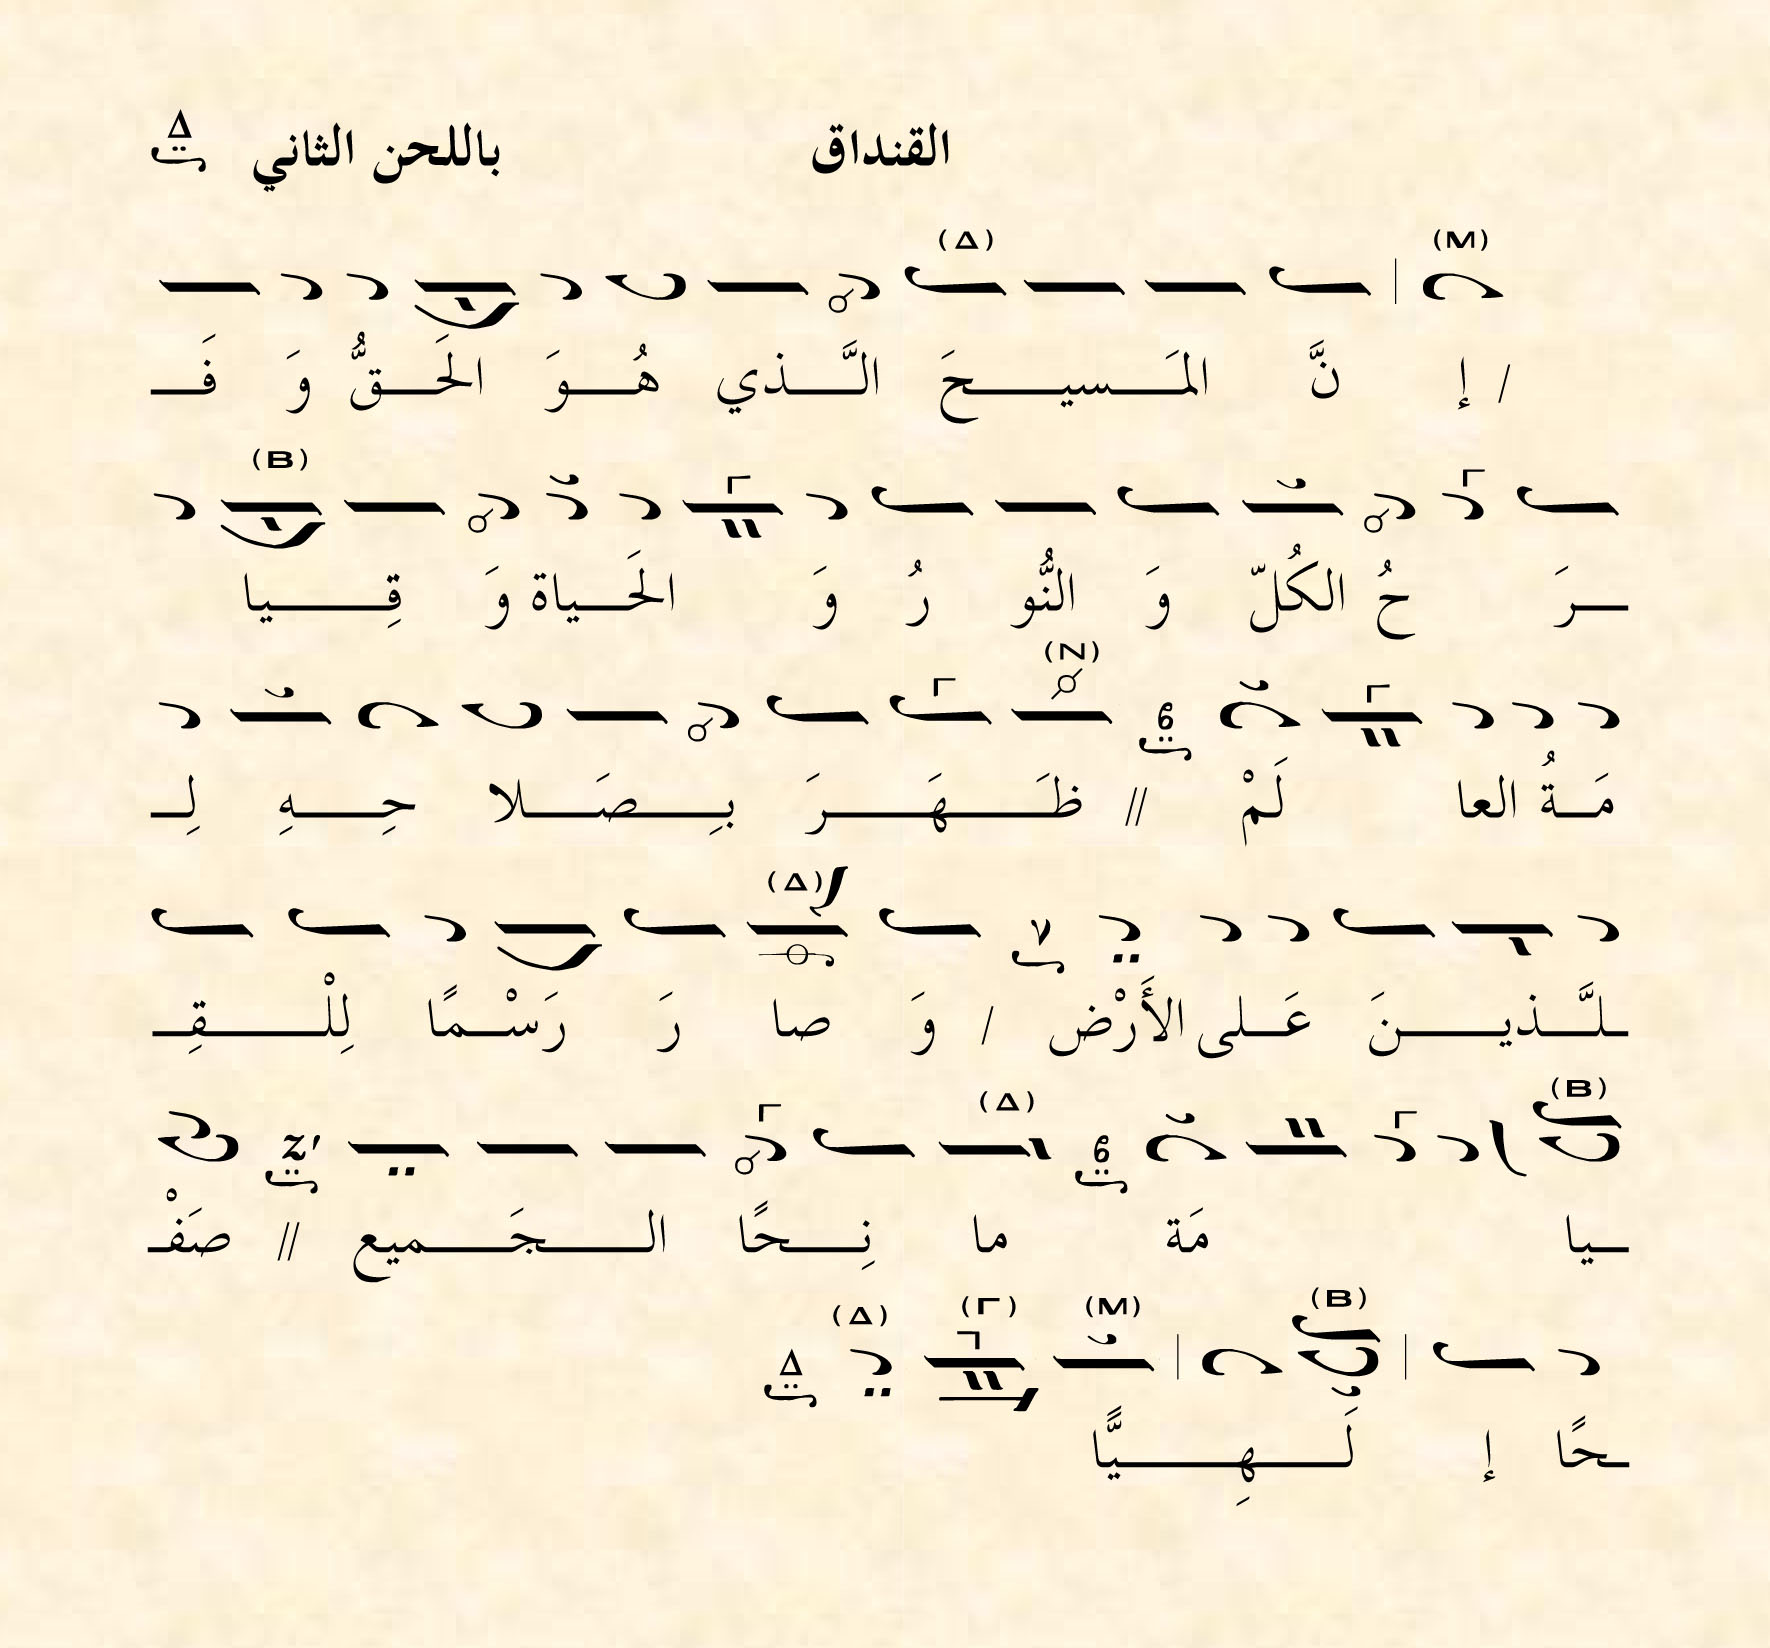 القنداق باللحن الثاني Δ
(M) (Δ)
/ إ نَّ المَـسيـحَ الَّـذي هُـوَ الحَـقُّ وَ فَـ
(B)
ـرَ حُ الكُلّ وَ النُّو رُ وَ الحَـياة وَ قِـيا
(N)
مَـةُ العا لَمْ // ظَـهَـرَ بِـصَـلا حِـهِ لِـ
(Δ)
ـلَّـذيـنَ عَـلى الأَرْض / وَ صا رَ رَسْـمًا لِلْـقِـ
(B) (Δ)
ـيا مَة ما نِـحًا الـجَـميع // صَفْـ
(B) (M) (Γ) (Δ) Δ
ـحًا إ لَـهِـيًّا